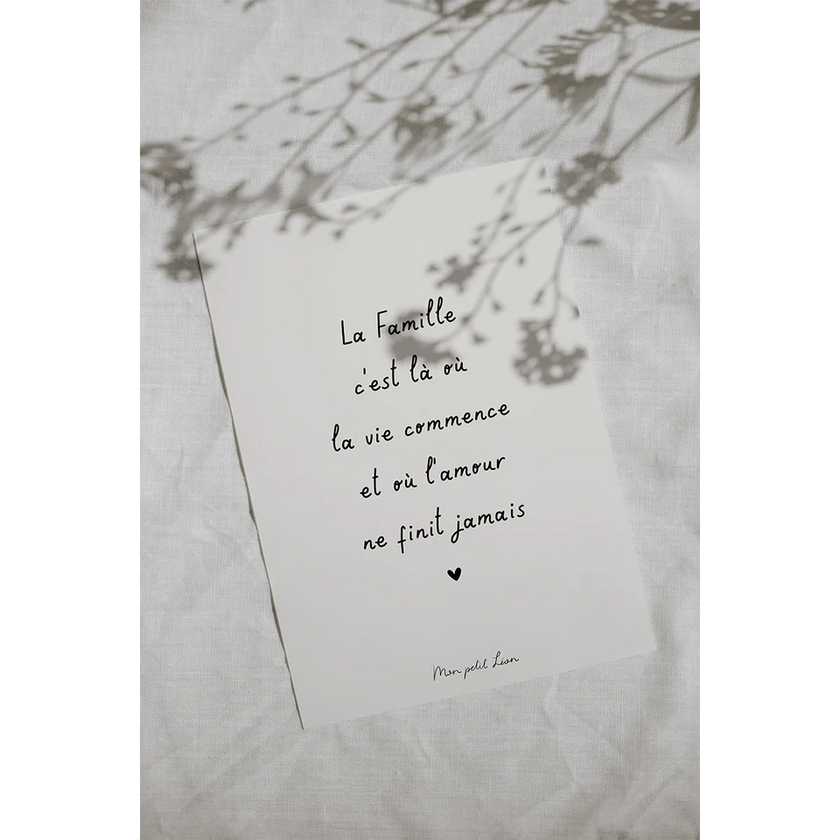 La Famille
c'est là où
la vie commence
et où l'amour
ne finit jamais
Mon petit Léon